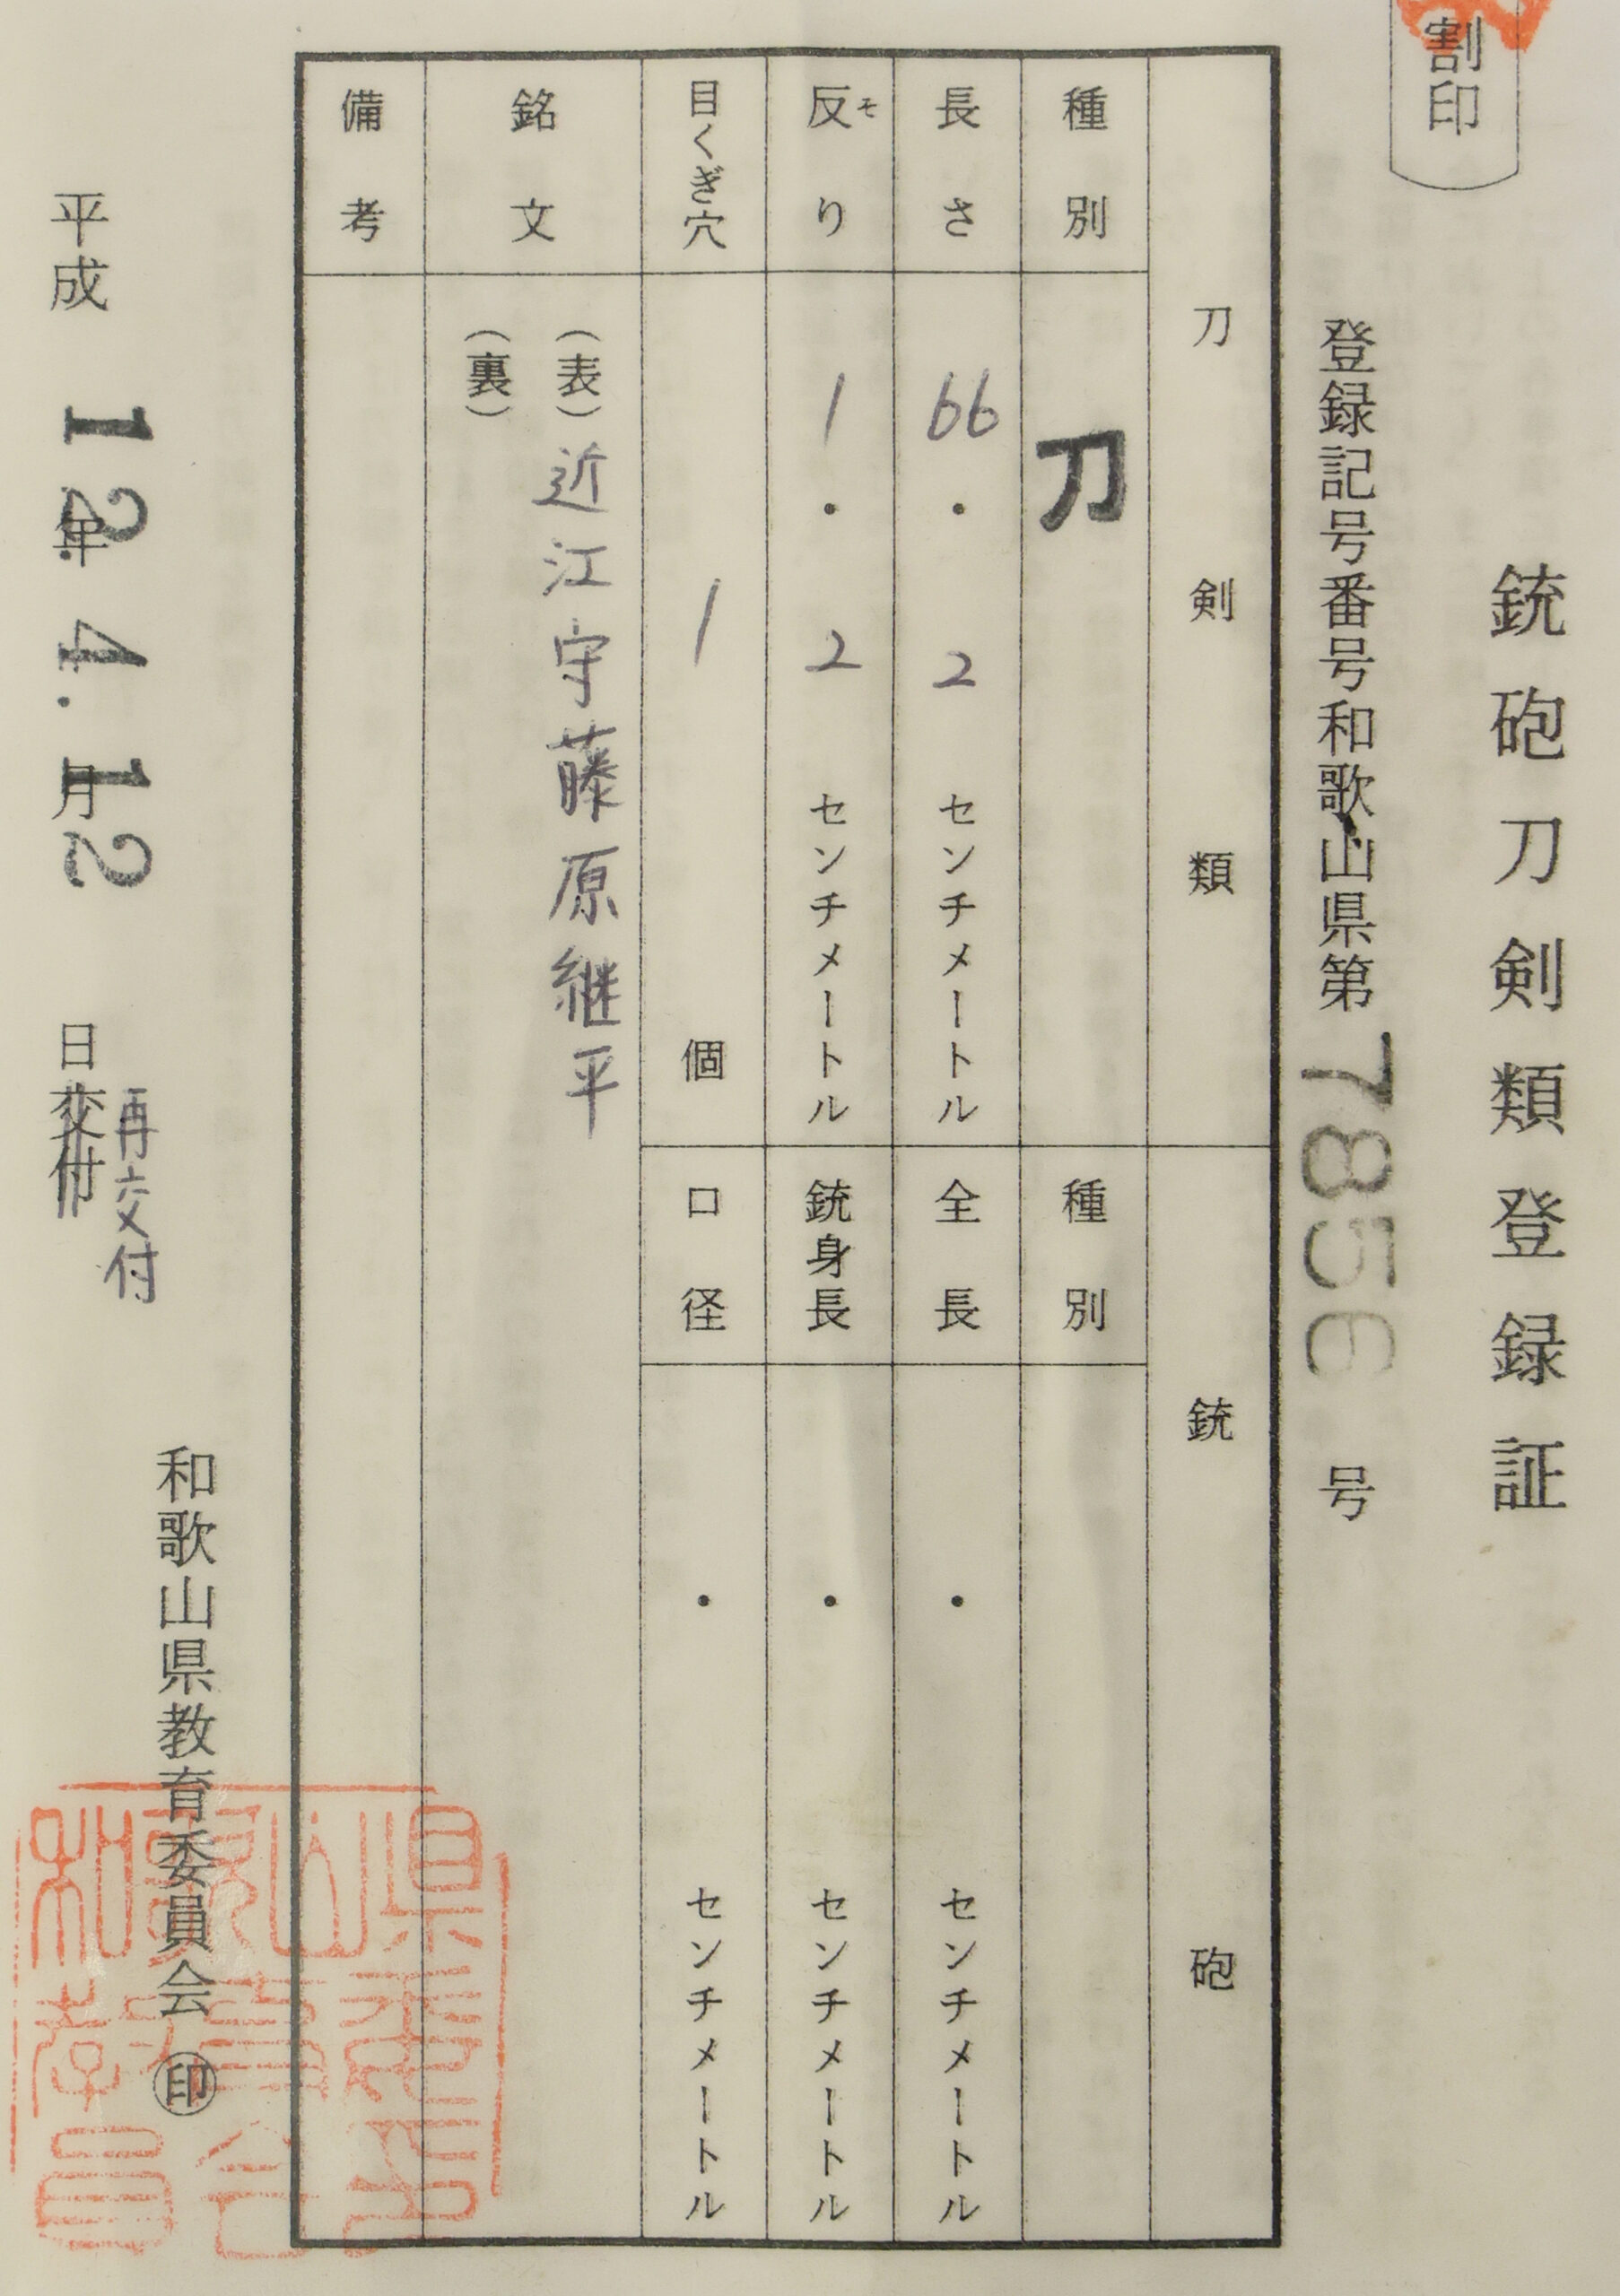 割印
銃砲刀剣類登録証
登録記号番号和歌山県第7856号
刀剣類
銃砲
種別
刀
種別
長さ
66・2センチメートル
全長
・センチメートル
反り
モ
1・2センチメートル
銃身長
・センチメートル
目くぎ穴
1個
口径
・センチメートル
銘文
(表)近江守藤原継平
(裏)
備考
和歌山県教育委員会 印
再交付
平成12年4.月12日交付